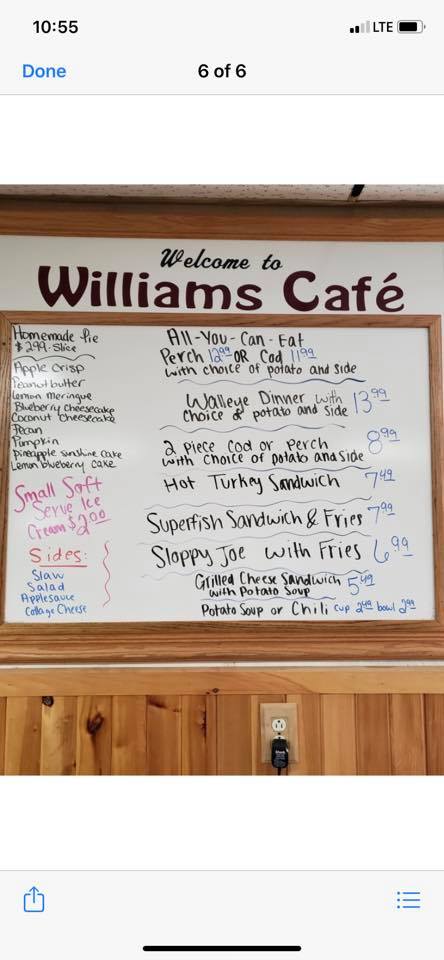 10:55
LTE
Done
6 of 6
Welcome to
Williams Café
Homemade Pie
$2.99 Slice
Apple Crisp
Peanutbutter
Lemon Meringue
Blueberry cheesecake
Coconut Cheesecake
Pecan
Pumpkin
Pineapple sunshine cake
Lemon blueberry cake
Small Soft
Serve Ice
Cream $2.00
Sides:
Slaw
Salad
Applesauce
Cottage Cheese
All-You-Can-Eat
Perch 12.99 OR Cod 11.99
with choice of potato and side
Walleye Dinner with 13.99
choice of potato and side
2 piece Cod or Perch 8.99
with Choice of potato and side
Hot Turkey Sandwich 7.49
Superfish Sandwich & Fries 7.99
Sloppy Joe with Fries 6.99
Grilled Cheese Sandwich 5.49
with Potato Soup
Potato Soup or Chili cup 2.49 bowl 2.99